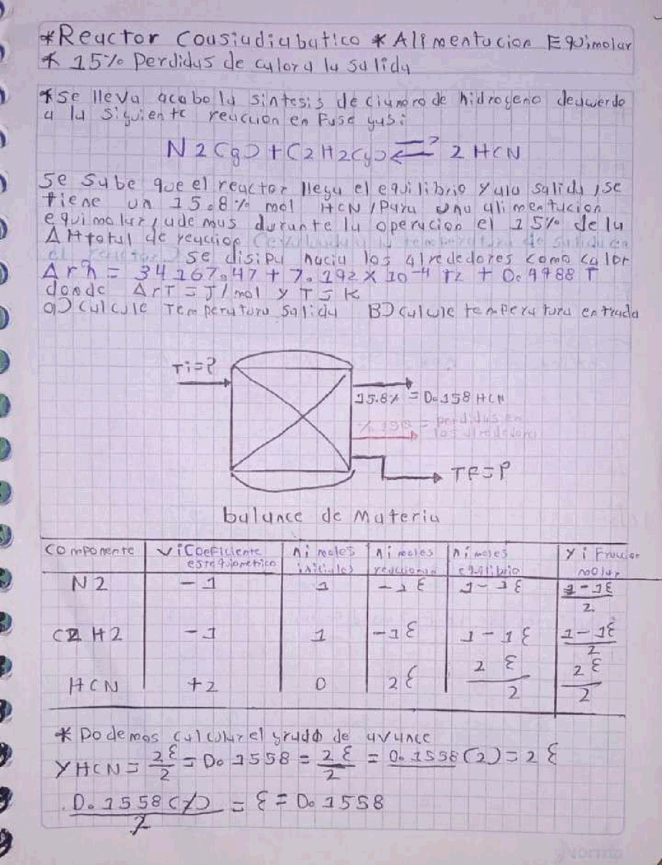 *Reactor Cousiudiabatico * Alimentacion Equimolar
* 15% Perdidas de calora la salida
*Se lleva acabo la sintesis de cianuro de hidrogeno deacuerdo
a la Siguiente reaccion en Fase gas:
N2(g) + C2H2(g) ⇌ 2 HCN
Se sabe que el reactor llega el equilibrio y a la salida, se
tiene un 15.8% mol HCN, Para una alimentacion
equimolar, ademas durante la operacion el 15% de la
ΔHtotal de reaccion (evaluada a la temperatura de salida en
el reactor) se disipa hacia los alrededores como calor
Δrh = 34167.47 + 7.192 x 10⁻⁴ T2 + 0.9988 T
donde ΔrT = J/mol y T = K
a) Calcule Temperatura Salida B) Calcule temperatura entrada
Ti=?
15.8% = 0.158 HCN
perdidas en
los alrededores
TF=?
balance de Materia
Componente Vi Coeficiente ni moles ni moles ni moles yi Fraccion
estequiometrico iniciales reaccionan equilibrio molar
N2 -1 1 -1ε 1-1ε 1-1ε/2
C2H2 -1 1 -1ε 1-1ε 1-1ε/2
HCN +2 0 2ε 2ε/2 2ε/2
* Podemos calcular el grado de avance
YHCN = 2ε/2 = 0.1558 = 2ε/2 = 0.1558(2) = 2ε
0.1558(2)/2 = ε = 0.1558
norma